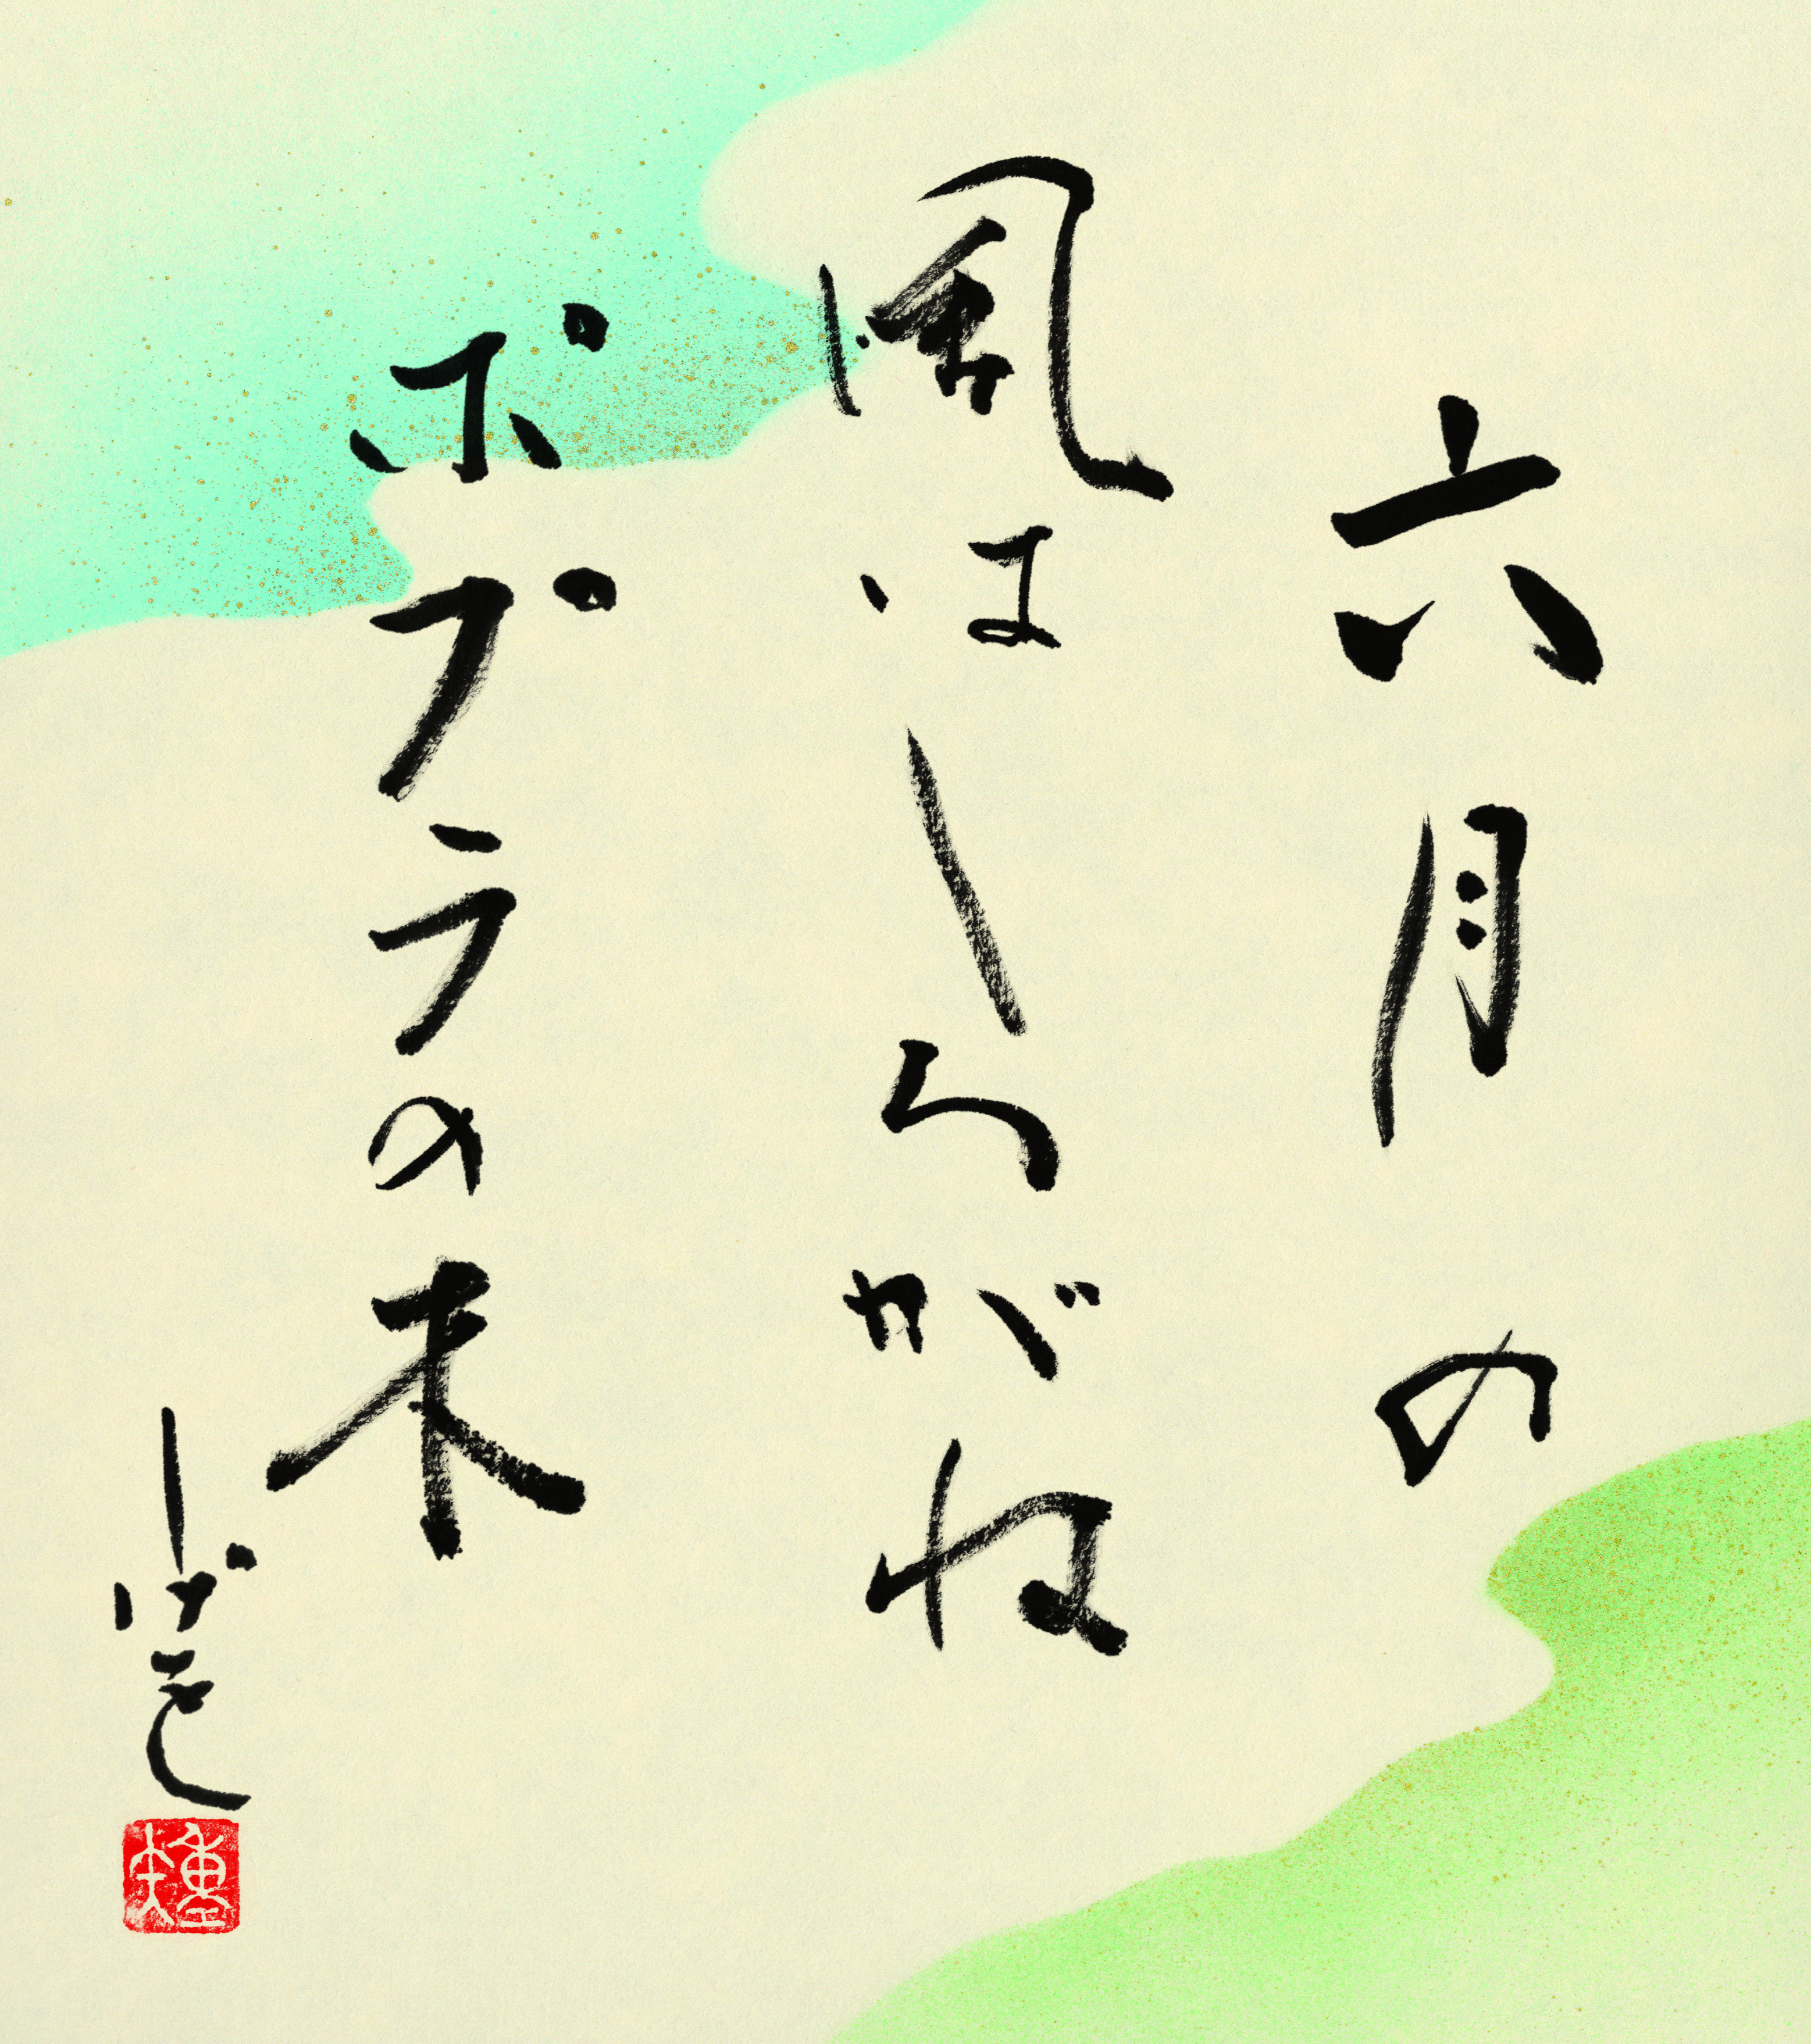 六月の
風はしろがね
ポプラの木
しげを